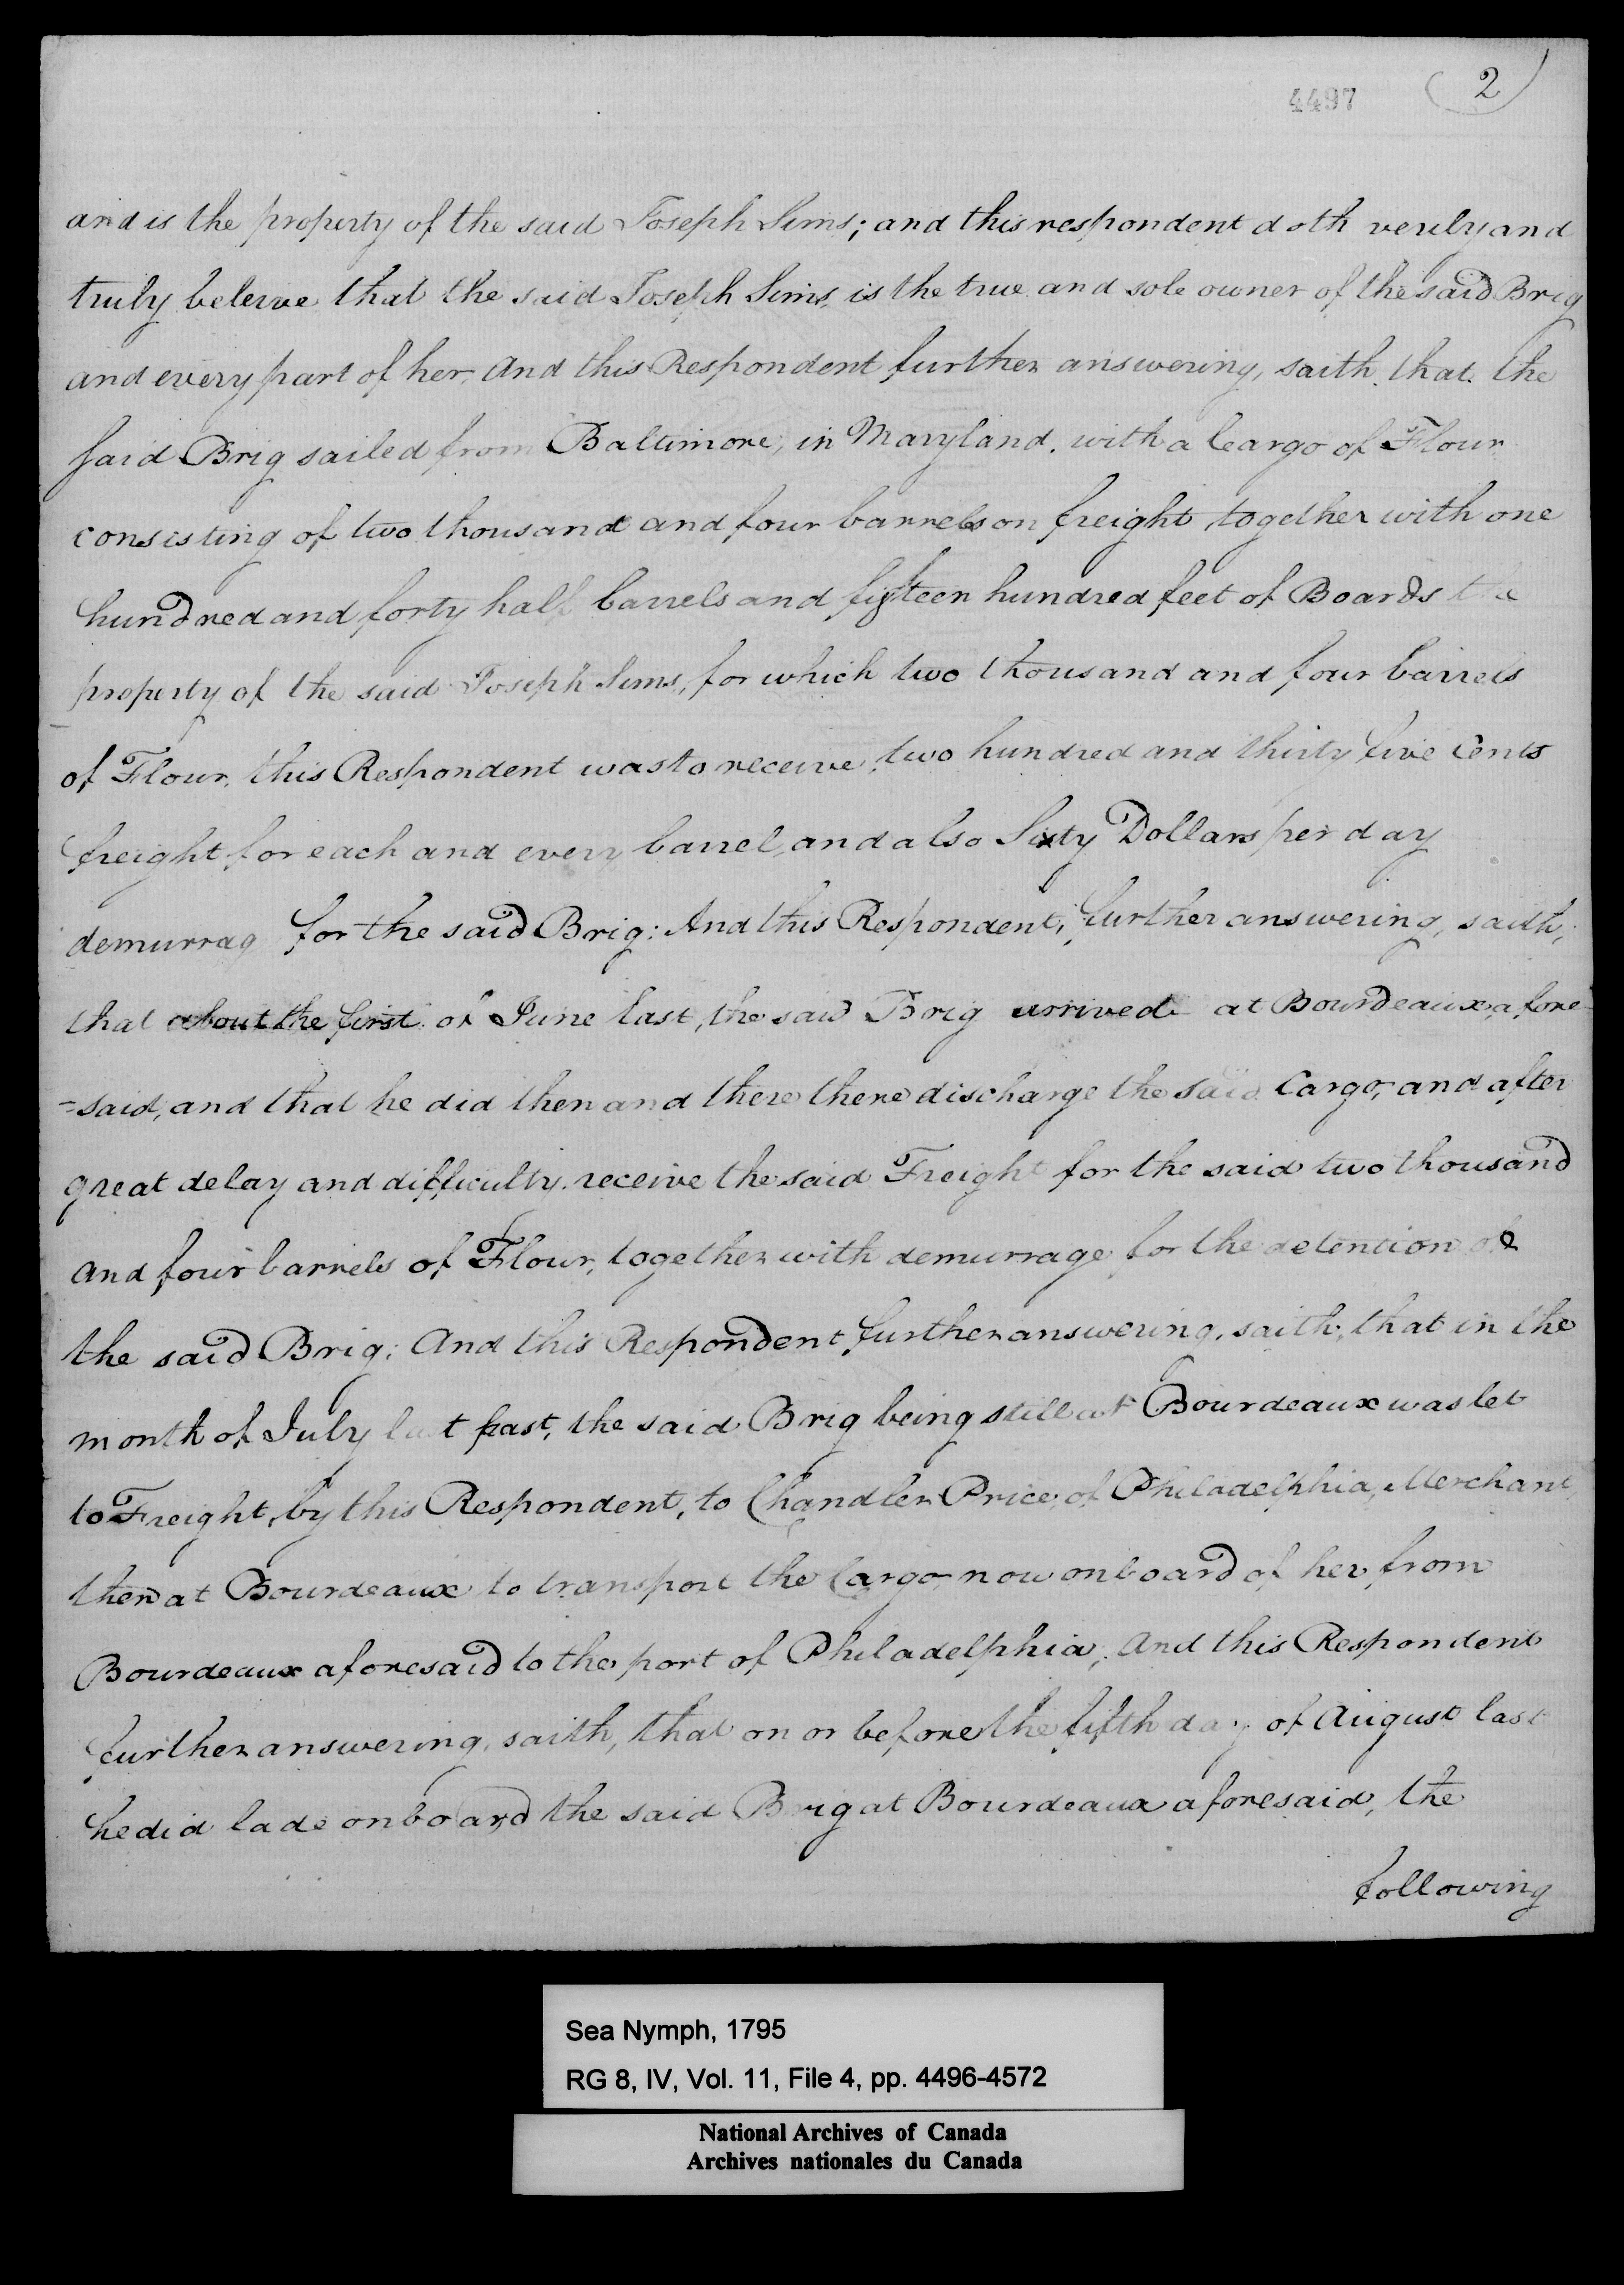 4497 (2)
and is the property of the said Joseph Sims; and this respondent doth verily and
truly beleive that the said Joseph Sims, is the true and sole owner of the said Brig
and every part of her. And this Respondent further answering, saith. that. the
said Brig sailed from Baltimore, in Maryland. with a Cargo of Flour
consisting of two thousand and four barrels on freight, together with one
hundred and forty half barrels and fifteen hundred feet of Boards the
property of the said Joseph Sims, for which two thousand and four barrels
of Flour, this Respondent was to receive, two hundred and thirty five Cents
freight for each and every barrel, and also Sixty Dollars per day
demurrag for the said Brig: And this Respondent, further answering, saith,
that about the first of June last, the said Brig arrived at Bourdeaux, afore-
=said, and that he did then and there there discharge the said Cargo, and after
great delay and difficulty. receive the said Freight for the said two thousand
and four barrels of Flour, together with demurrage for the detention of
the said Brig; And this Respondent further answering, saith, that in the
month of July last past, the said Brig being still at Bourdeaux was let
to Freight, by this Respondent, to Chandler Price, of Philadelphia, Merchant,
then at Bourdeaux to transport the Cargo now onboard of her from
Bourdeaux aforesaid to the port of Philadelphia; And this Respondent
further answering, saith, that on or before the fifth day of August last
he did lade onboard the said Brig at Bourdeaux aforesaid, the
following
Sea Nymph, 1795
RG 8, IV, Vol. 11, File 4, pp. 4496-4572
National Archives of Canada
Archives nationales du Canada